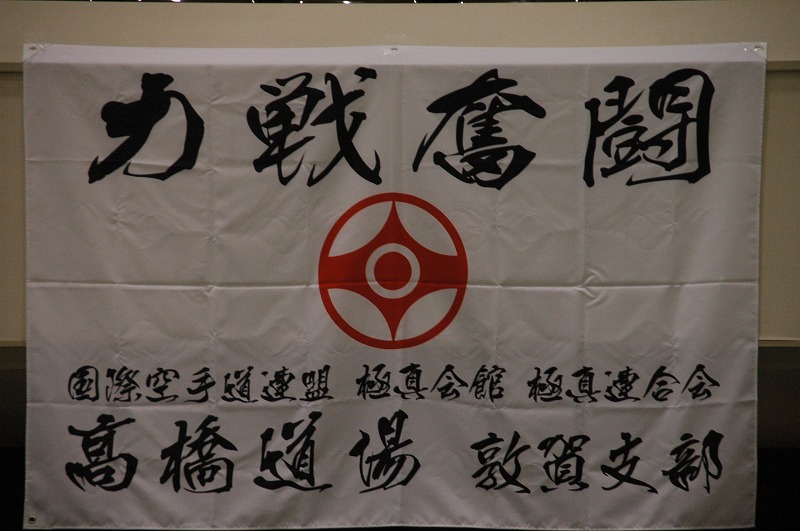 力戦奮闘
国際空手道連盟 極真会館 極真連合会
髙橋道場 敦賀支部